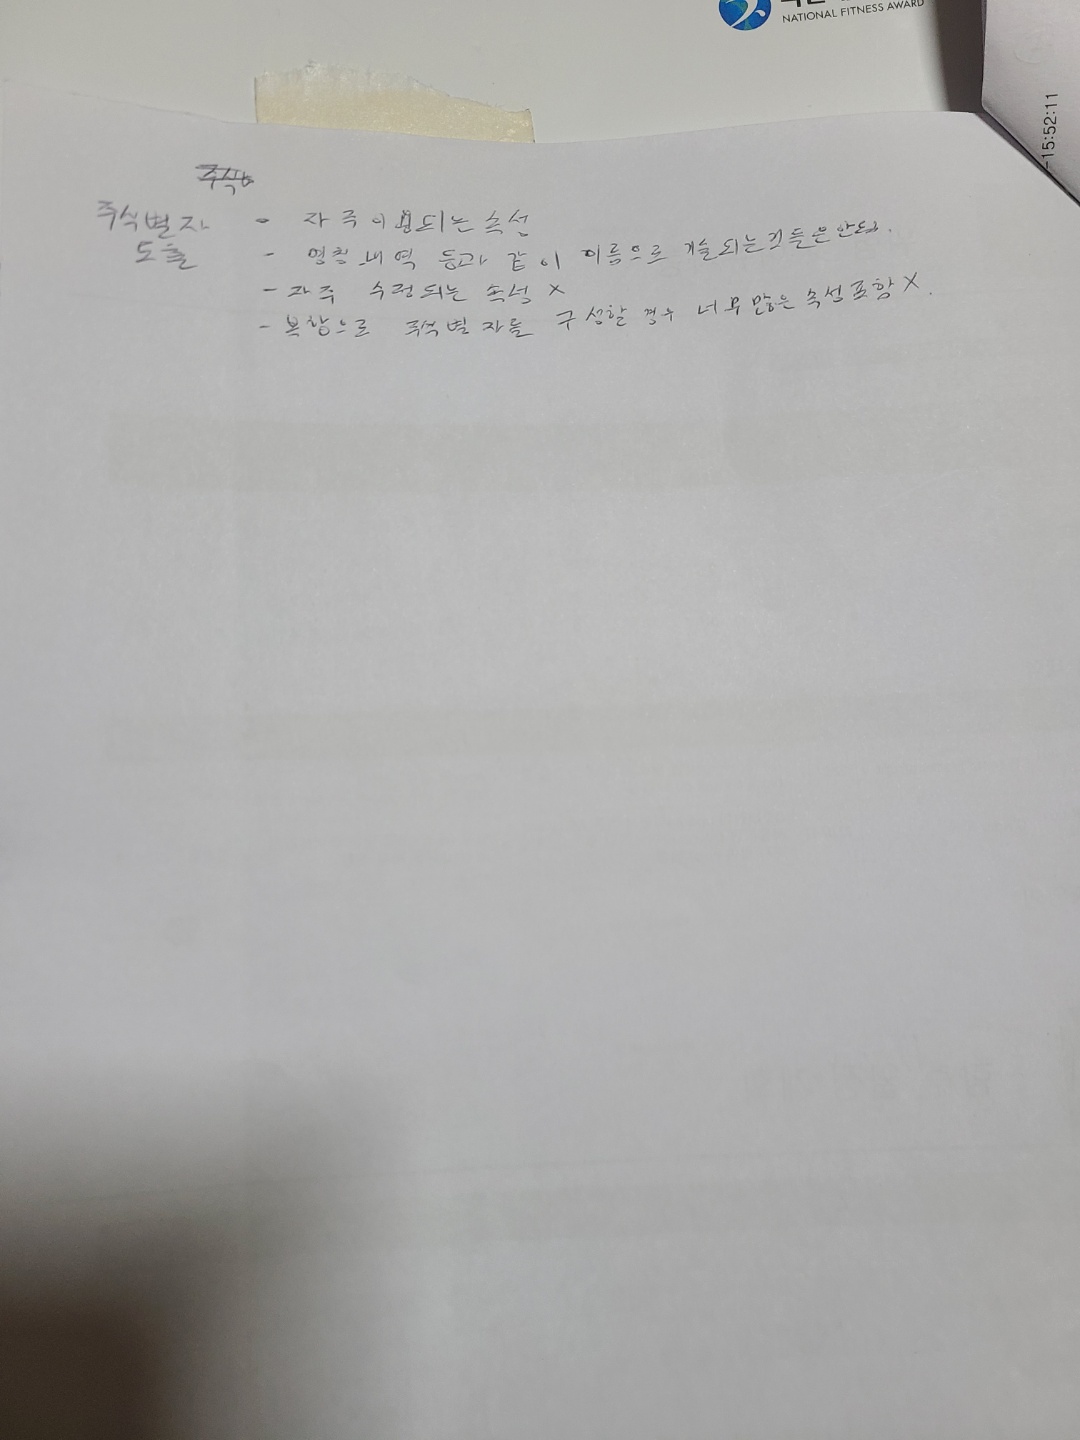 NATIONAL FITNESS AWARD
-15:52:11
주식별자 - 자주 이용되는 속성
도출 - 명칭 내역 등과 같이 이름으로 기술되는 것들은 안돼.
- 자주 수정되는 속성 X
- 복합으로 주식별자를 구성할 경우 너무 많은 속성 포함 X.